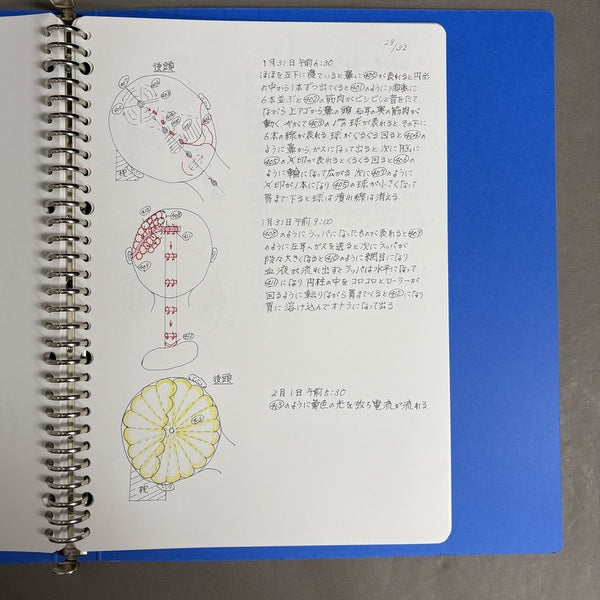 28/32
後頭
1月31日午前6:30
ほほを左下に寝ていると鼻に㊿が表れると円形
の中から1本ずつ出てくると401のように順番に
6本並ぶと402の筋肉がピシピシと音をたて
ながら上アゴから鼻の頭 右耳の奥の筋肉が
動く、やがて403の1㎝の球が表れるとその下に
6本の線が表れる 球がぐるぐる回ると404の
ように鼻からガスになって出ると次に脳に
405の〆印が表れるとくるくる回ると406の
ように輪になって広がる 次に407のように
〆印が1本になり 405の球が小さくなって
胃まで下ると球は潰れ線は消える
枕
1月31日午前9:00
408のようにラッパになったものが表れると409
のように左耳へガスを送ると次にラッパが
段々大きくなると410のように網目になり
血液が流れ出すとラッパは水平になって
411になり 円柱の中をコロコロとローラーが
回るように転がりながら胃までくると412になり
胃に溶け込んでオナラになって出る
後頭
2月1日午前5:30
413のように黄色の光を放ち電流が流れる
枕